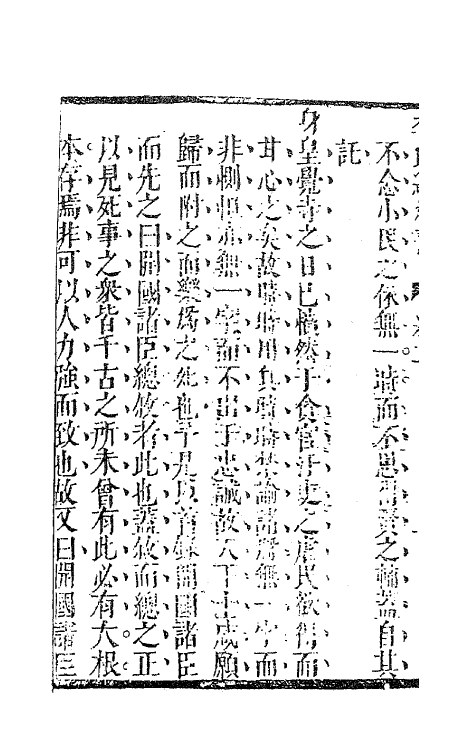 不念小民之依無一時而不思小民之
託
身皇覺寺之日已憤然于貪官汙吏之虐民欲得而
甘心之矣故時時用兵時時禁諭諸將無一字而
非惻怛無一字而不出于忠誠故天下士咸願
歸而附之而樂爲之死也于是以首錄開國諸臣
而先之曰開國諸臣總敘者此也蓋敘而總之正
以見死事之衆皆千古之所未曾有此必有大根
本存焉非可以人力強而致也故又曰開國諸臣